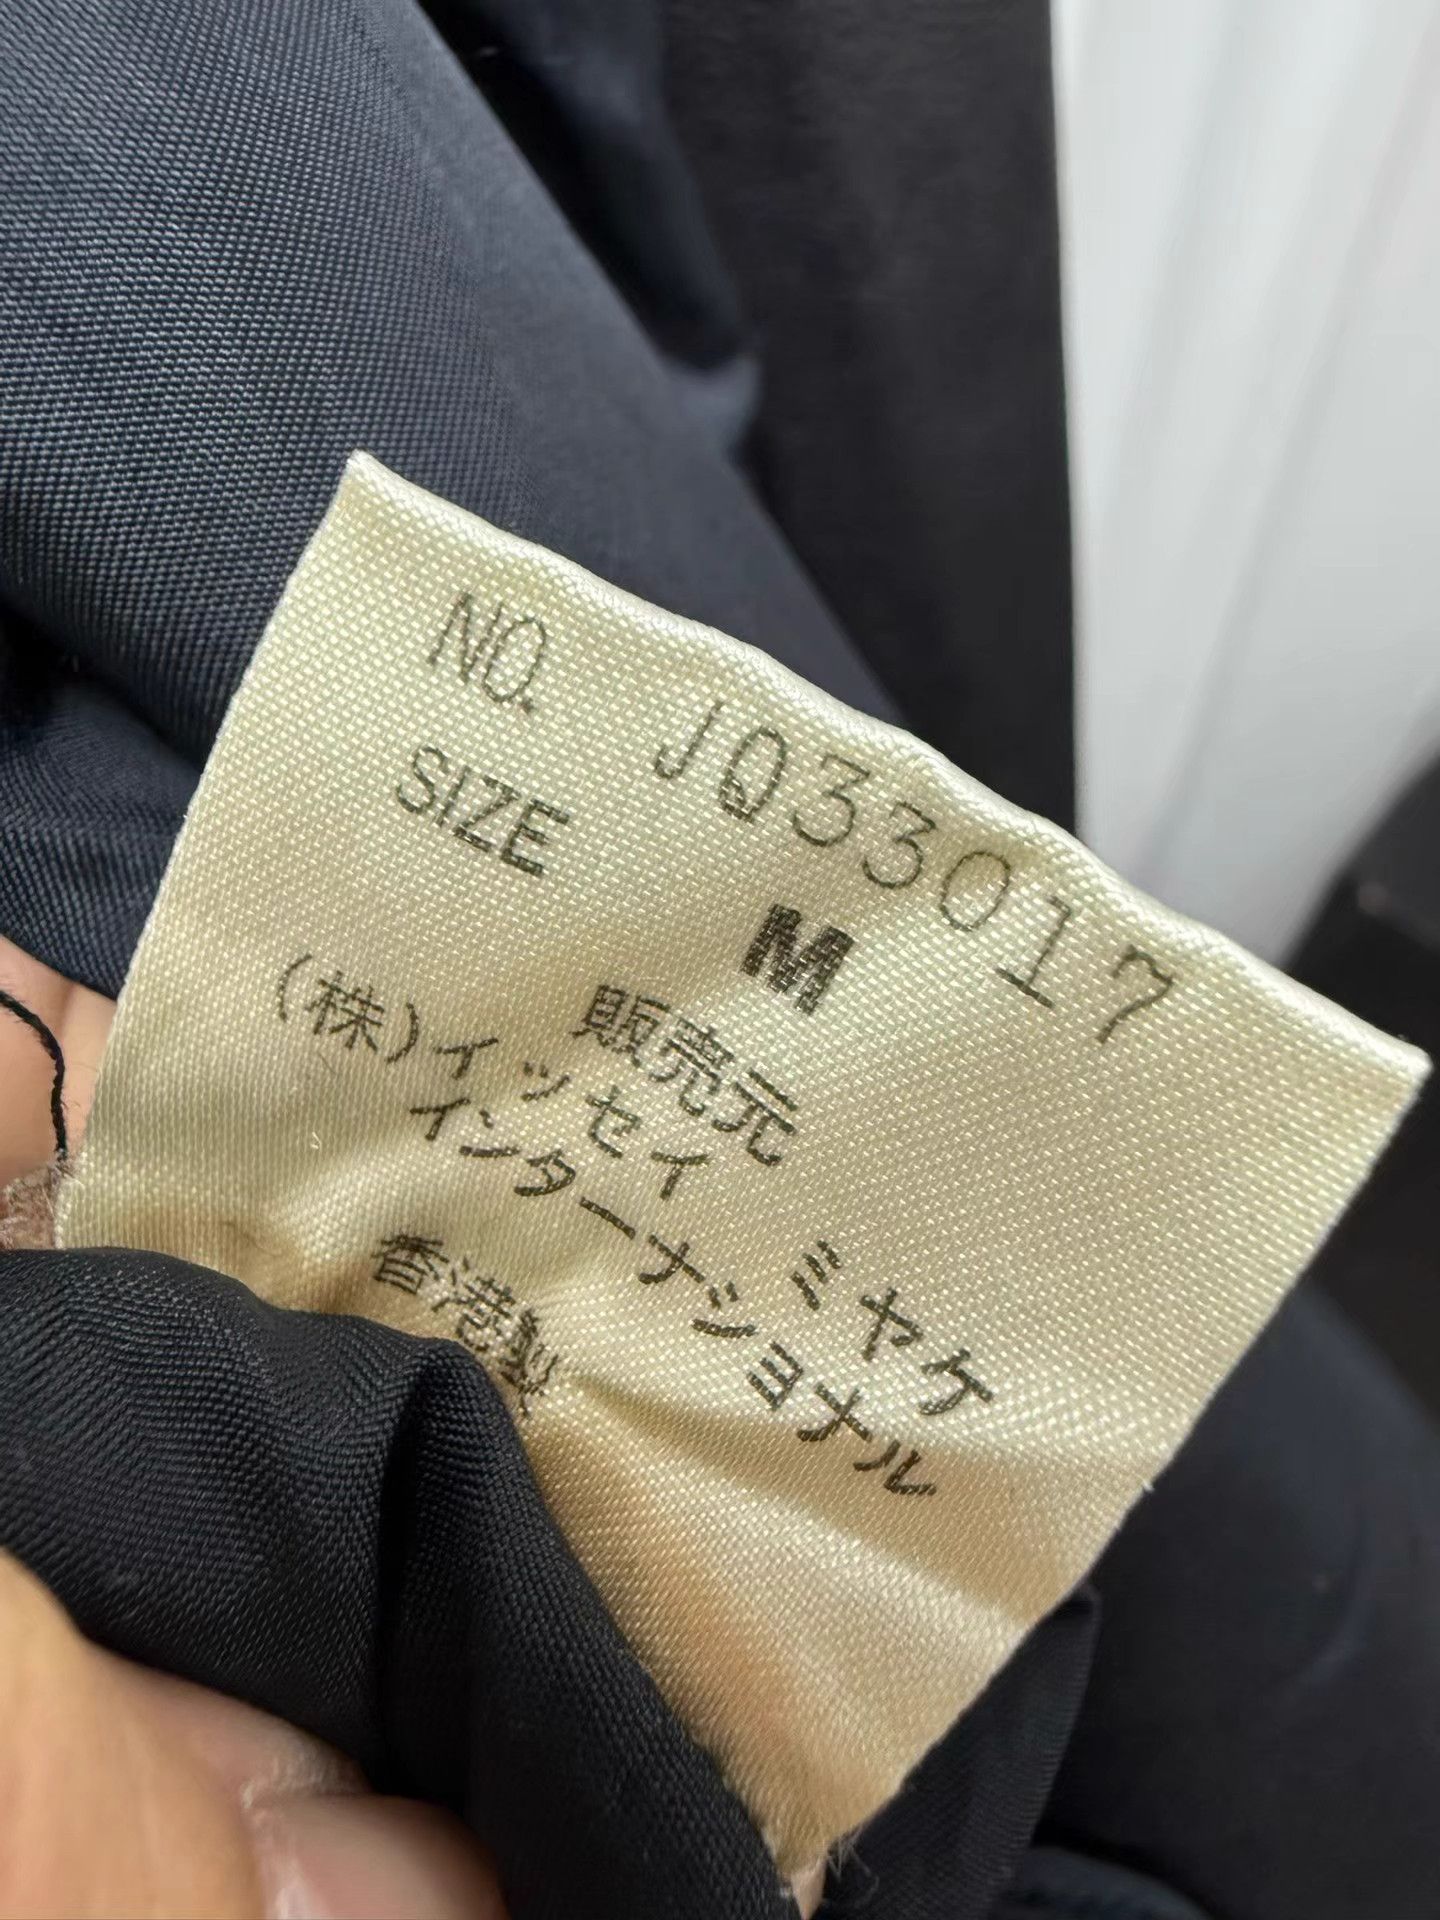 NO. JQ33017
SIZE M
販売元
(株)イッセイ ミヤケ
インターナショナル
香港製